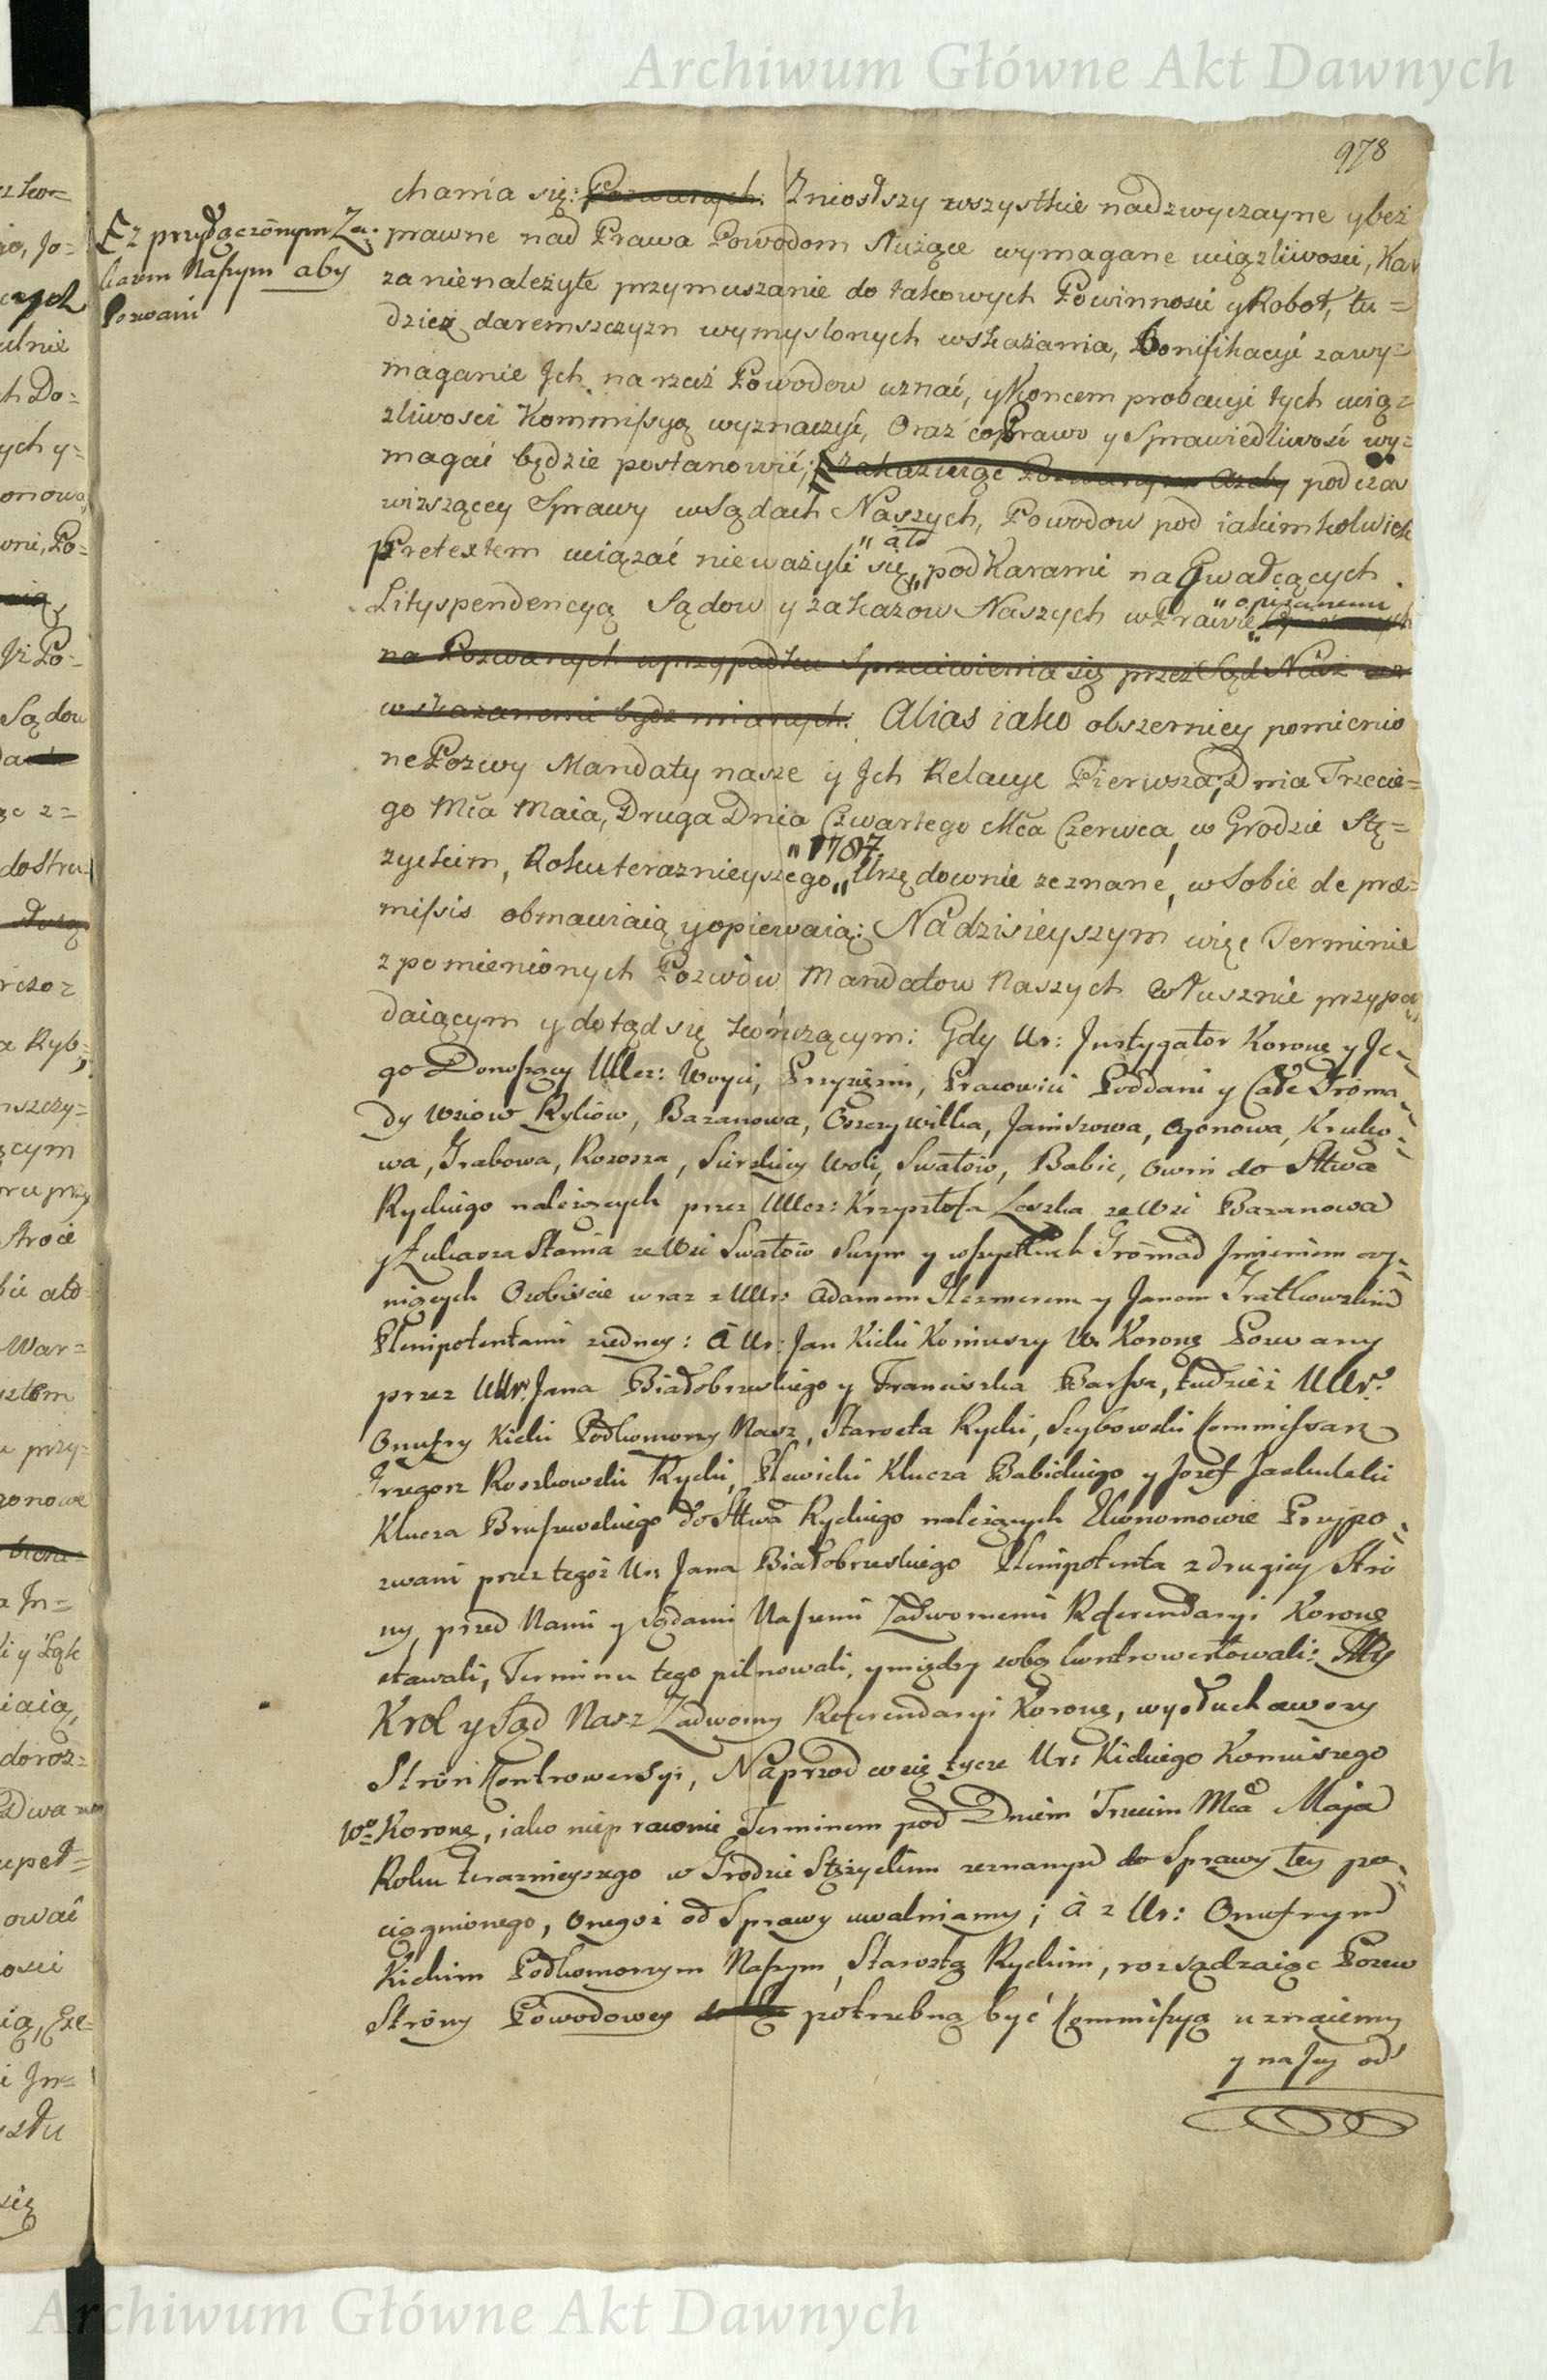 Archiwum Główne Akt Dawnych
978
chania się: Pozwanych: Zniosłszy wszystkie nadzwyczayne y bez
prawne nad Prawa Powodom służące wymagane uciązliwosci, Kar
za nienależyte przymuszanie do takowych Powinnosci y Robot, tu=
dzież daremszczyzn wymyslonych wskazania, bonifikacyi za wy=
maganie Jch na rzecz Powodow uznać, y Koncem probacyi tych uciąz=
zliwosci Kommissyą wyznaczyć, Oraz co Prawo y Sprawiedliwość wy=
magać będzie postanowić; Zakazuiąc Pozwanym Azeby podczas
wiszącey Sprawy w Sądach Naszych, Powodow pod iakimkolwiek
" a to
Pretextem uciązać nie ważyli się " pod Karami na Gwałcących
Lityspendencyą Sądow y zakazow Naszych w Prawie
" opisanemi
na Pozwanych w przypadku Sprzeciwienia się przez Sąd Nasz
wskazanemi bydz mianych: Alias iako obszerniey pomienio
ne Pozwy Mandaty nasze y Jch Relacye Pierwsza Dnia Trzecie=
go Mca Maia, Druga Dnia Czwartego Mca Czerwca, w Grodzie Stę=
" 1787.
zyckim, Roku teraznieyszego " Urzędownie zeznane, w Sobie de præ=
missis obmawiaią y opiewaią: Na dzisieyszym więc Terminie
z pomienionych Pozwów Mandatow Naszych Słusznie przypa
daiącym y dotąd się kończącym: Gdy Ur: Instygator Koronę y Je=
go Donoszący UUcz: Woyci, Przysięzni, Pracowici Poddani y Całe Groma=
dy Wsiow Rykiow, Bazanowa, Oszczywilka, Janiszowa, Ogonowa, Kruko=
wa, Grabowa, Rososza, Sierskiey Woli, Swatów, Babic, Owni do Sttwa
Ryckiego należących przez UUcz: Krzysztofa Leszka ze Wsi Bazanowa
y Łukasza Stania ze Wsi Swatow Swym y wszystkich Gromad Jmieniem czy=
niących Osobiscie wraz z UUr: Adamem Mezmerem y Janem Tratkowskim
Plenipotentami zjedney: A Ur: Jan Kicki Koniuszy W. Koronę Pozwany
przez UUr: Jana Białobrzeskiego y Franciszka Barssa, tudzież UUr:
Onufry Kicki Podkomorzy Nasz, Starosta Rycki, Szybowski Commissarz
Grzegorz Roszkowski Rycki, Plewicki Klucza Babickiego y Jozef Jaskulski
Klucza Brusowskiego do Sttwa Ryckiego należących Ekonomowie Przypo=
zwani przez tegoż Ur: Jana Białobrzeskiego Plenipotenta z drugiey Stro
ny, przed Nami y Sądami Naszemi Zadwornemi Referendaryi Koronę
stawali, Terminu tego pilnowali, y między sobą kontrowertowali: My
Krol y Sąd Nasz Zadworny Referendaryi Koronę, wysłuchawszy
Stron Kontrowersyi, Naprzod co się tycze Ur: Kickiego Koniuszego
Wo Koronę, iako nieprawnie Terminem pod Dniem Trzecim Mca Maja
Roku teraznieyszego w Grodzie Stężyckim zeznanym do Sprawy tey po=
ciągnionego, onegoż od Sprawy uwalniamy; A z Ur: Onufrym
Kickim Podkomorzym Naszym, Starostą Ryckim, rozsądzaiąc Pozew
Strony Powodowey potrzebną być Commissyą uznaiemy
y na Jey od
Z przyłączonym Za=
kazem Naszym aby
Pozwani
Archiwum Główne Akt Dawnych